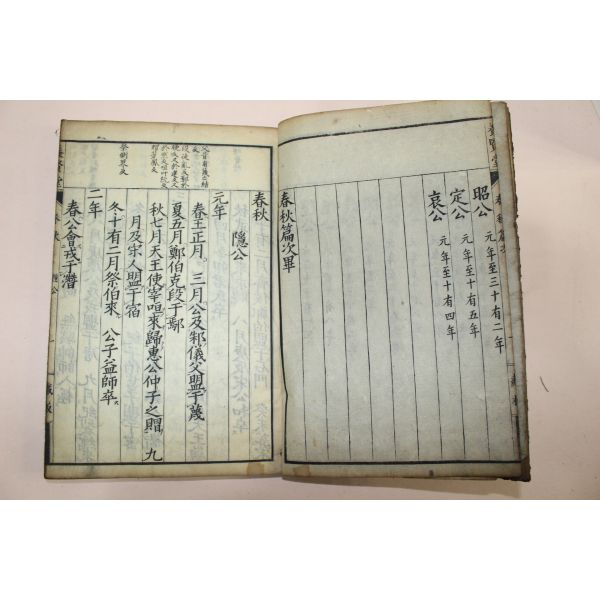 昭公 元年至三十有二年
定公 元年至十有五年
哀公 元年至十有四年
春秋篇次畢
春秋
隱公
元年
春王正月。三月公及邾儀父盟于蔑
夏五月鄭伯克段于鄢
秋七月天王使宰咺來歸惠公仲子之賵。九
月及宋人盟于宿
冬十有二月祭伯來。公子益師卒。
二年
春公會戎于潛